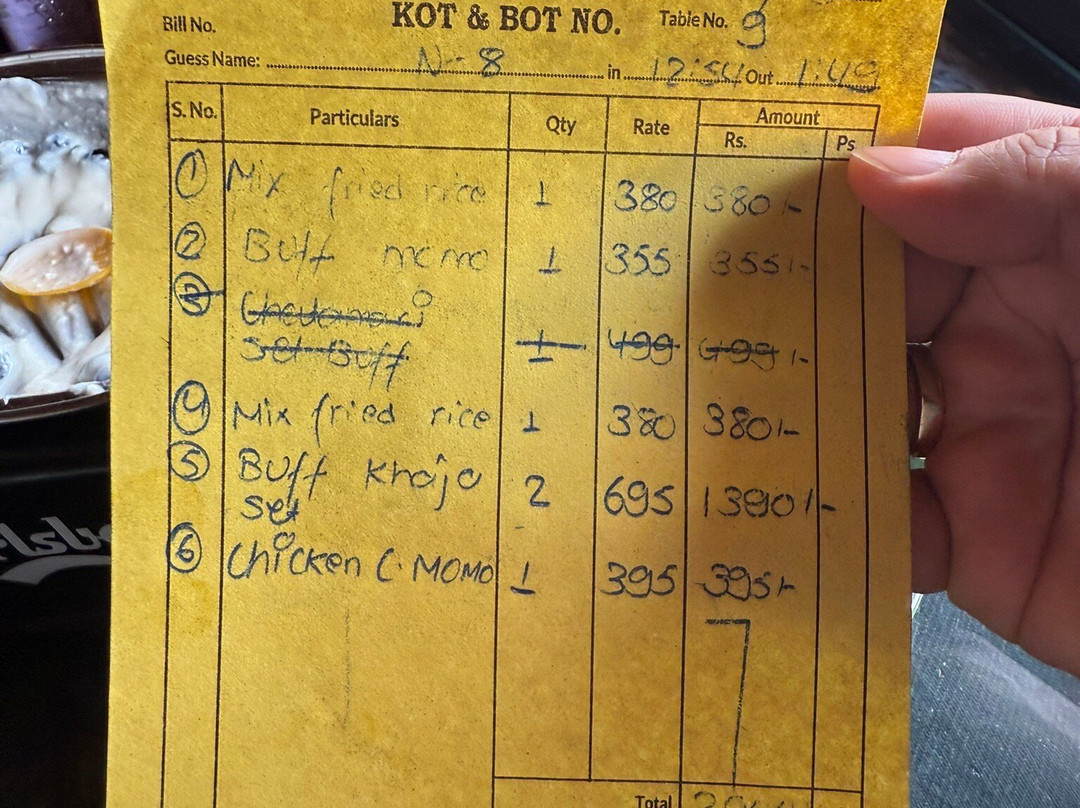 Bill No.
KOT & BOT NO.
Table No. 9
Guess Name: N-8 in 12:54 Out 1:49
S. No. Particulars Qty Rate Amount
Rs. Ps
1 Mix fried rice 1 380 380/-
2 Buff momo 1 355 355/-
3 Chatamari
Set Buff 1 499 499/-
4 Mix fried rice 1 380 380/-
5 Buff Khaja 2 695 1390/-
set
6 Chicken C. MOMO 1 395 395/-
Total